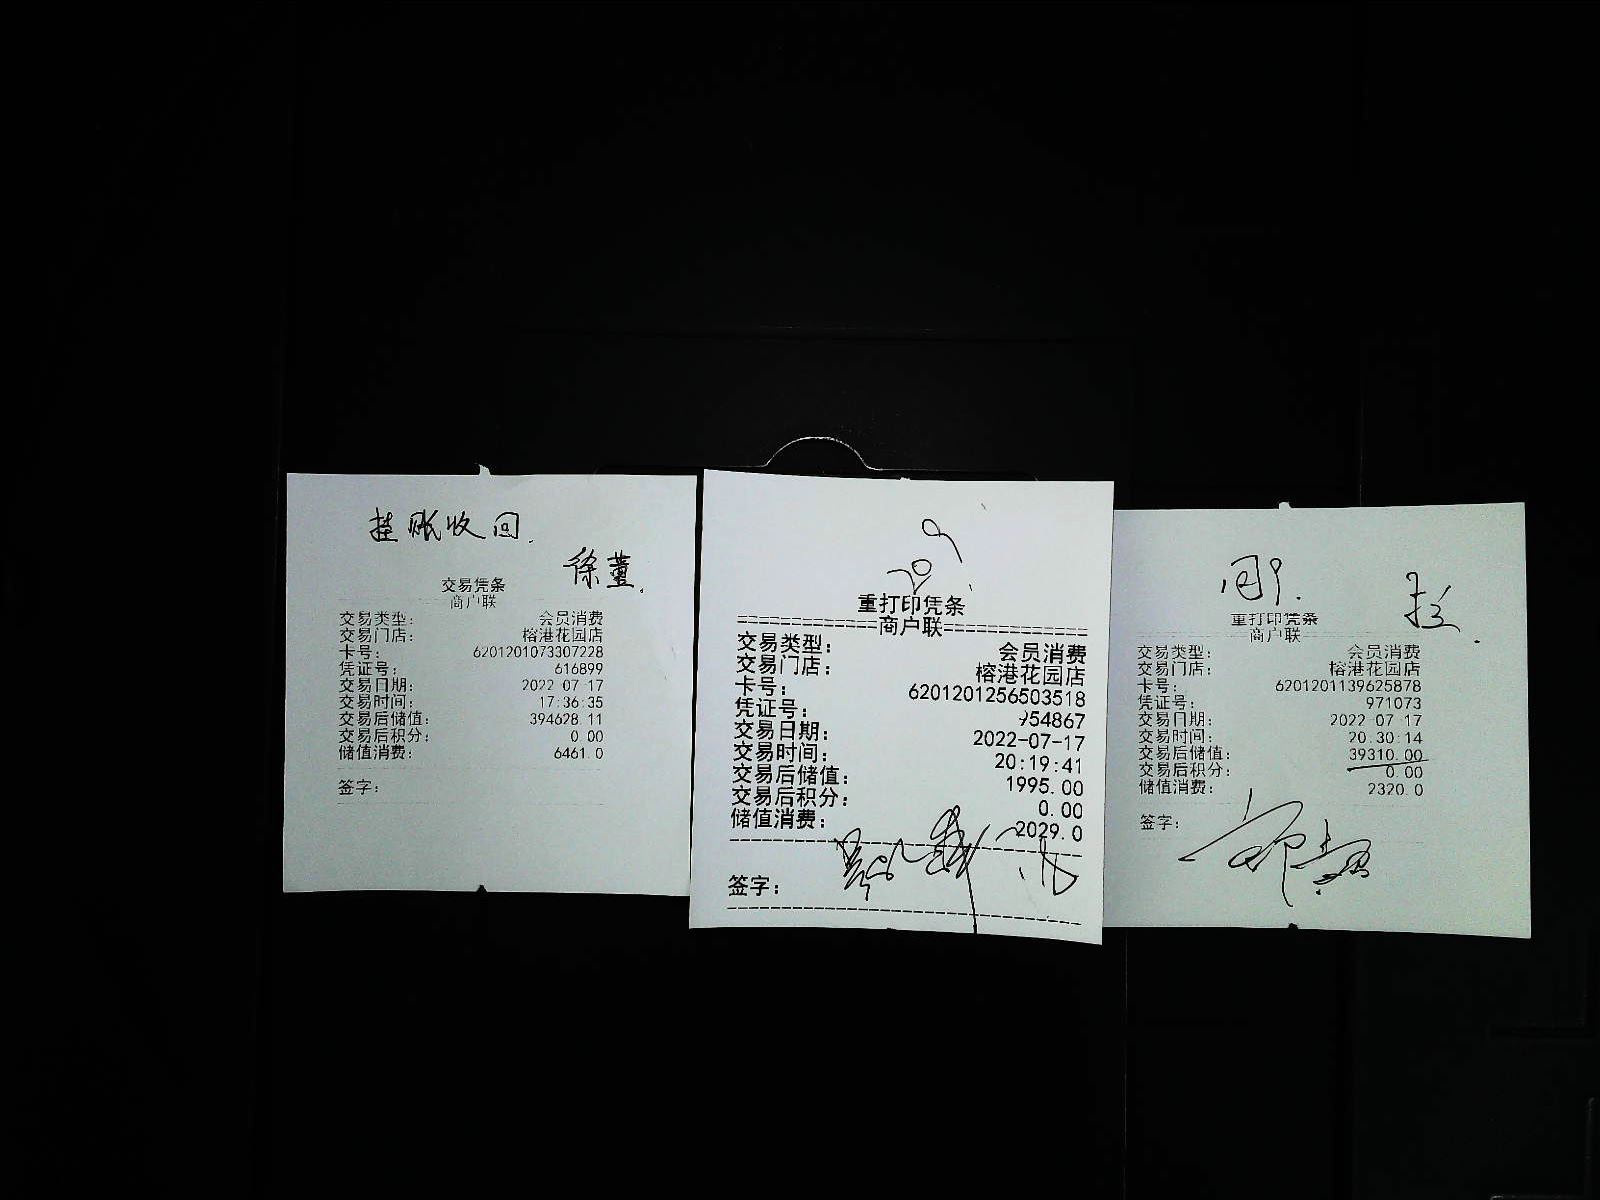 挂账收回.
徐萱.
交易凭条
商户联
交易类型: 会员消费
交易门店: 榕港花园店
卡号: 6201201073307228
凭证号: 616899
交易日期: 2022-07-17
交易时间: 17:36:35
交易后储值: 394628.11
交易后积分: 0.00
储值消费: 6461.0
签字:
209
重打印凭条
============商户联============
交易类型: 会员消费
交易门店: 榕港花园店
卡号: 6201201256503518
凭证号: 954867
交易日期: 2022-07-17
交易时间: 20:19:41
交易后储值: 1995.00
交易后积分: 0.00
储值消费: 2029.0
签字:
重打印凭条
商户联
交易类型: 会员消费
交易门店: 榕港花园店
卡号: 6201201139625878
凭证号: 971073
交易日期: 2022-07-17
交易时间: 20:30:14
交易后储值: 39310.00
交易后积分: 0.00
储值消费: 2320.0
签字: